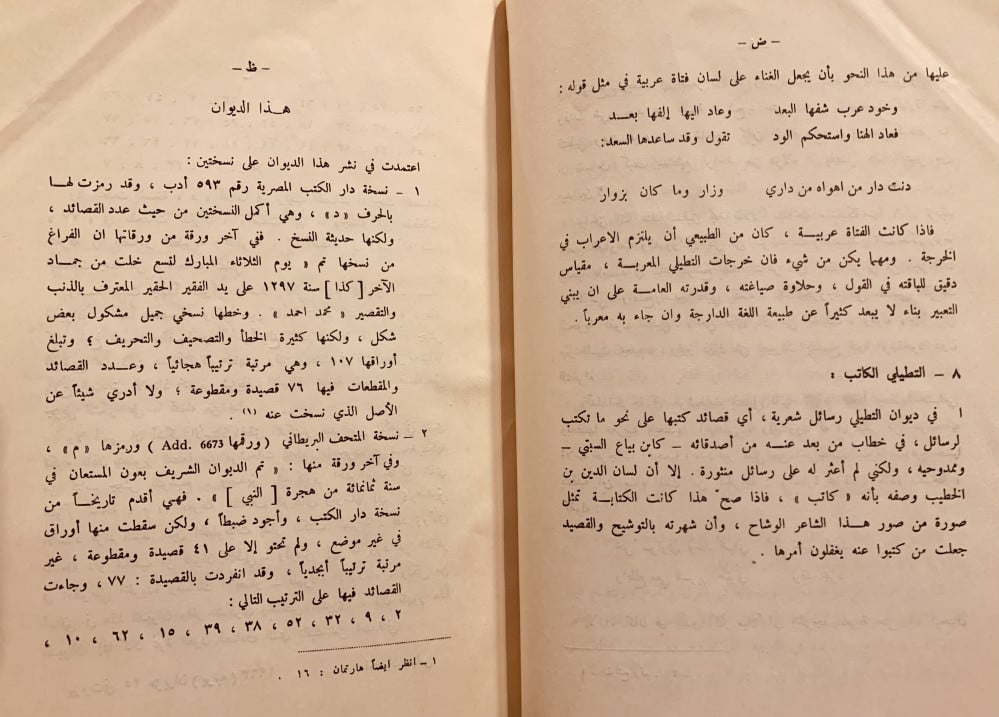 - ض -
عليها من هذا النحو بأن يجعل الغناء على لسان فتاة عربية في مثل قوله :
وخود عرب شفها البعد وعاد اليها إلفها بعــد
فعاد الهنا واستحكم الود تقول وقد ساعدها السعد:
دنت دار من اهواه من داري وزار وما كان بزوار
فاذا كانت الفتاة عربيــة ، كان من الطبيعي أن يلتزم الاعراب في
الخرجة . ومهما يكن من شيء فان خرجات التطيلي المعربــة ، مقياس
دقيق للباقته في القول ، وحلاوة صياغته ، وقدرته العامــة على ان يبني
التعبير بناء لا يبعد كثيراً عن طبيعة اللغة الدارجة وان جاء به معرباً .
٨ - التطيلي الكاتب :
ا في ديوان التطيلي رسائل شعرية ، أي قصائد كتبها على نحو ما تكتب
لرسائل ، في خطاب من بعد عنــه من أصدقائه - كابن بياع السبتي -
وممدوحيه ، ولكني لم أعثر له على رسائل منثورة . إلا أن لسان الدين بن
الخطيب وصفه بأنه « كاتب » ، فاذا صحّ هذا كانت الكتابــة تمثل
صورة من صور هــذا الشاعر الوشاح ، وأن شهرته بالتوشيح والقصيد
جعلت من كتبوا عنه يغفلون أمرها .
- ظ -
هــذا الديوان
اعتمدت في نشر هذا الديوان على نسختين :
١ - نسخة دار الكتب المصرية رقم ٥٩٣ أدب ، وقد رمزت لهــا
بالحرف « د » ، وهي أكمل النسختين من حيث عدد القصائد ،
ولكنها حديثة النسخ . ففي آخر ورقة من ورقاتها ان الفراغ
من نسخها تم « يوم الثلاثاء المبارك لتسع خلت من جمــاد
الآخر [ كذا ] سنة ١٢٩٧ على يد الفقير الحقير المعترف بالذنب
والتقصير « محمد احمد » . وخطها نسخي جميل مشكول بعض
شكل ، ولكنها كثيرة الخطأ والتصحيف والتحريف ؛ وتبلغ
أوراقها ١٠٧ ، وهي مرتبة ترتيباً هجائياً ، وعــدد القصائد
والمقطعات فيها ٧٦ قصيدة ومقطوعة ؛ ولا أدري شيئاً عن
الأصل الذي نسخت عنه (١) .
٢ - نسخة المتحف البريطاني ( ورقمها Add. 6673 ) ورمزها « م » ،
وفي آخر ورقة منها : « تم الديوان الشريف بعون المستعان في
سنة ثمانمائة من هجرة [ النبي ] » . فهي أقدم تاريخــاً من
نسخة دار الكتب ، وأجود ضبطاً ، ولكن سقطت منها أوراق
في غير موضع ، ولم تحتو إلا على ٤١ قصيدة ومقطوعة ، غير
مرتبة ترتيباً أبجدياً ، وقد انفردت بالقصيدة : ٧٧ ، وجاءت
القصائد فيها على الترتيب التالي :
٢ ، ٩ ، ٣٢ ، ٥٢ ، ٣٨ ، ٣٩ ، ١٥ ، ٦٢ ، ١٠ ،
١ - انظر ايضاً هارتمان : ١٦ .